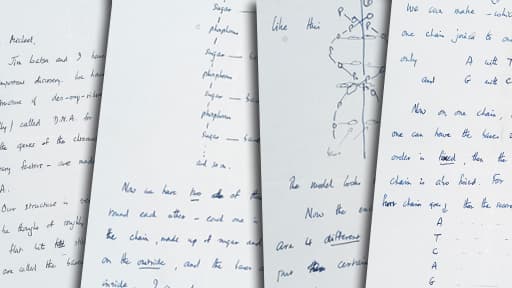 Michael,
Jim Watson and I have
important discovery. We have
structure of des-oxy-ribose
called D.N.A. for
the genes of the chromo
factors - are made
A.
Our structure is
be thought of roughly
flat bits
are called the bases
sugar
phosphorus
sugar — base
phosphorus
sugar — base
phosphorus
sugar — base
and so on.
Now we have two of these
round each other - each one is
the chain, made up of sugar and
on the outside, and the bases
inside. I
like this
P
The model looks
Now the
are 4 different
pair certain
We can make - which
one chain joined to one
only A with T
and G with C
Now on one chain,
one can have the bases in
order is fixed, then the
chain is also fixed. For
first chain goes, then the second
A
T
C
A
G